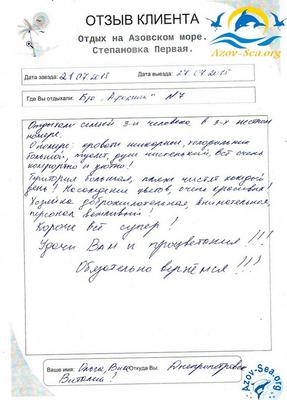 ОТЗЫВ КЛИЕНТА
Отдых на Азовском море.
Степановка Первая.
Azov-Sea.org
Дата заезда: 21.07.2015 Дата выезда: 27.07.2015
Где Вы отдыхали: №7
Отдыхали семьёй 3-и человека в 3-х местном
номере.
В номере: кровати шикарные, холодильник
большой, туалет, душ чистенький, всё очень
комфортно и уютно!
Територия большая, пляж чистят каждый
день! Насаждения цветов, очень красивые!
Хозяйка доброжилательная, внимательная,
персонал вежливый!
Короче всё супер!
Удачи Вам и процветания!!!
Обязательно вернёмся!!!
Ваше имя: Ольга, Виталий! Откуда Вы: Днепропетровск
Azov-Sea.org